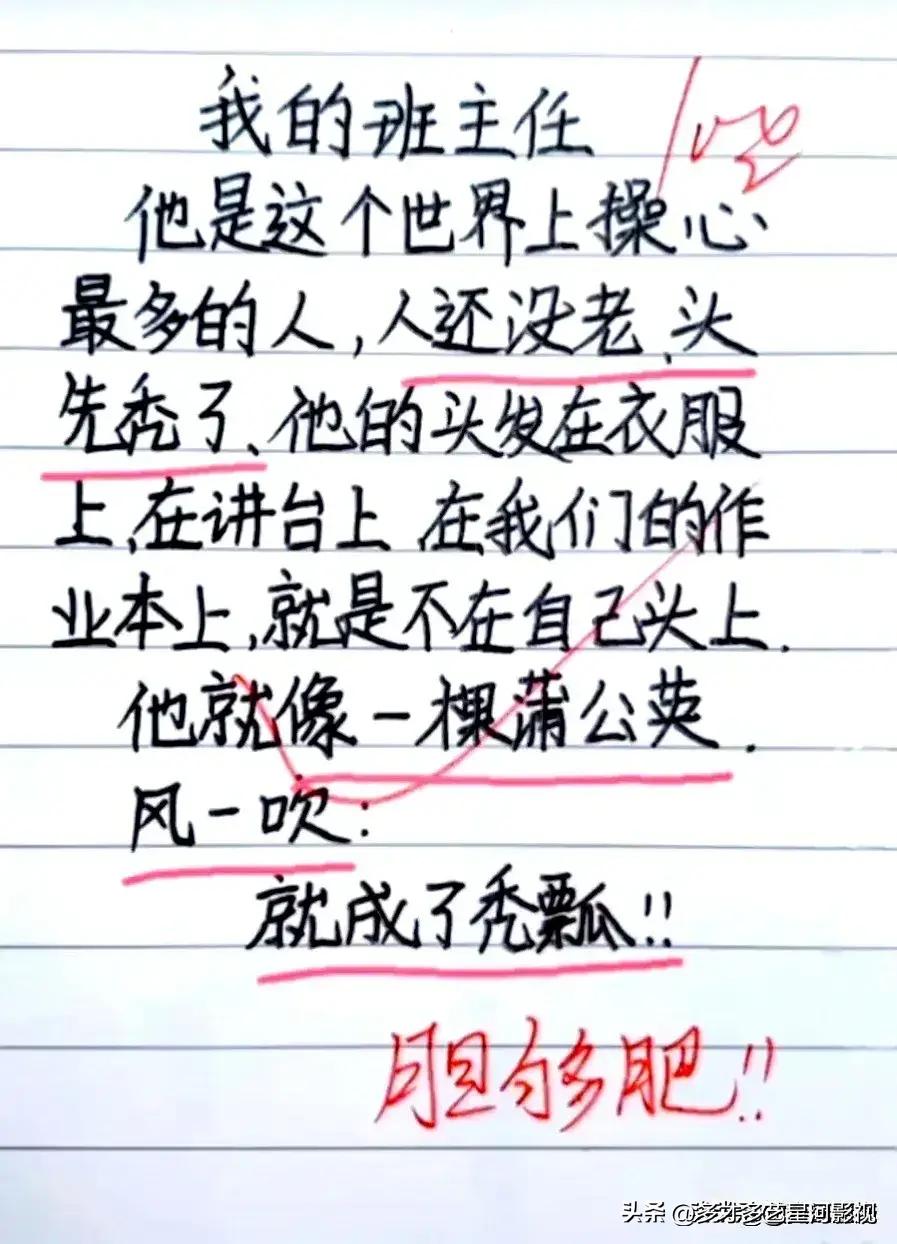 我的班主任
他是这个世界上操心
最多的人,人还没老、头
先秃了、他的头发在衣服
上,在讲台上 在我们的作
业本上,就是不在自己头上.
他就像一棵蒲公英.
风一吹:
就成了秃瓢!!
胆够肥!!